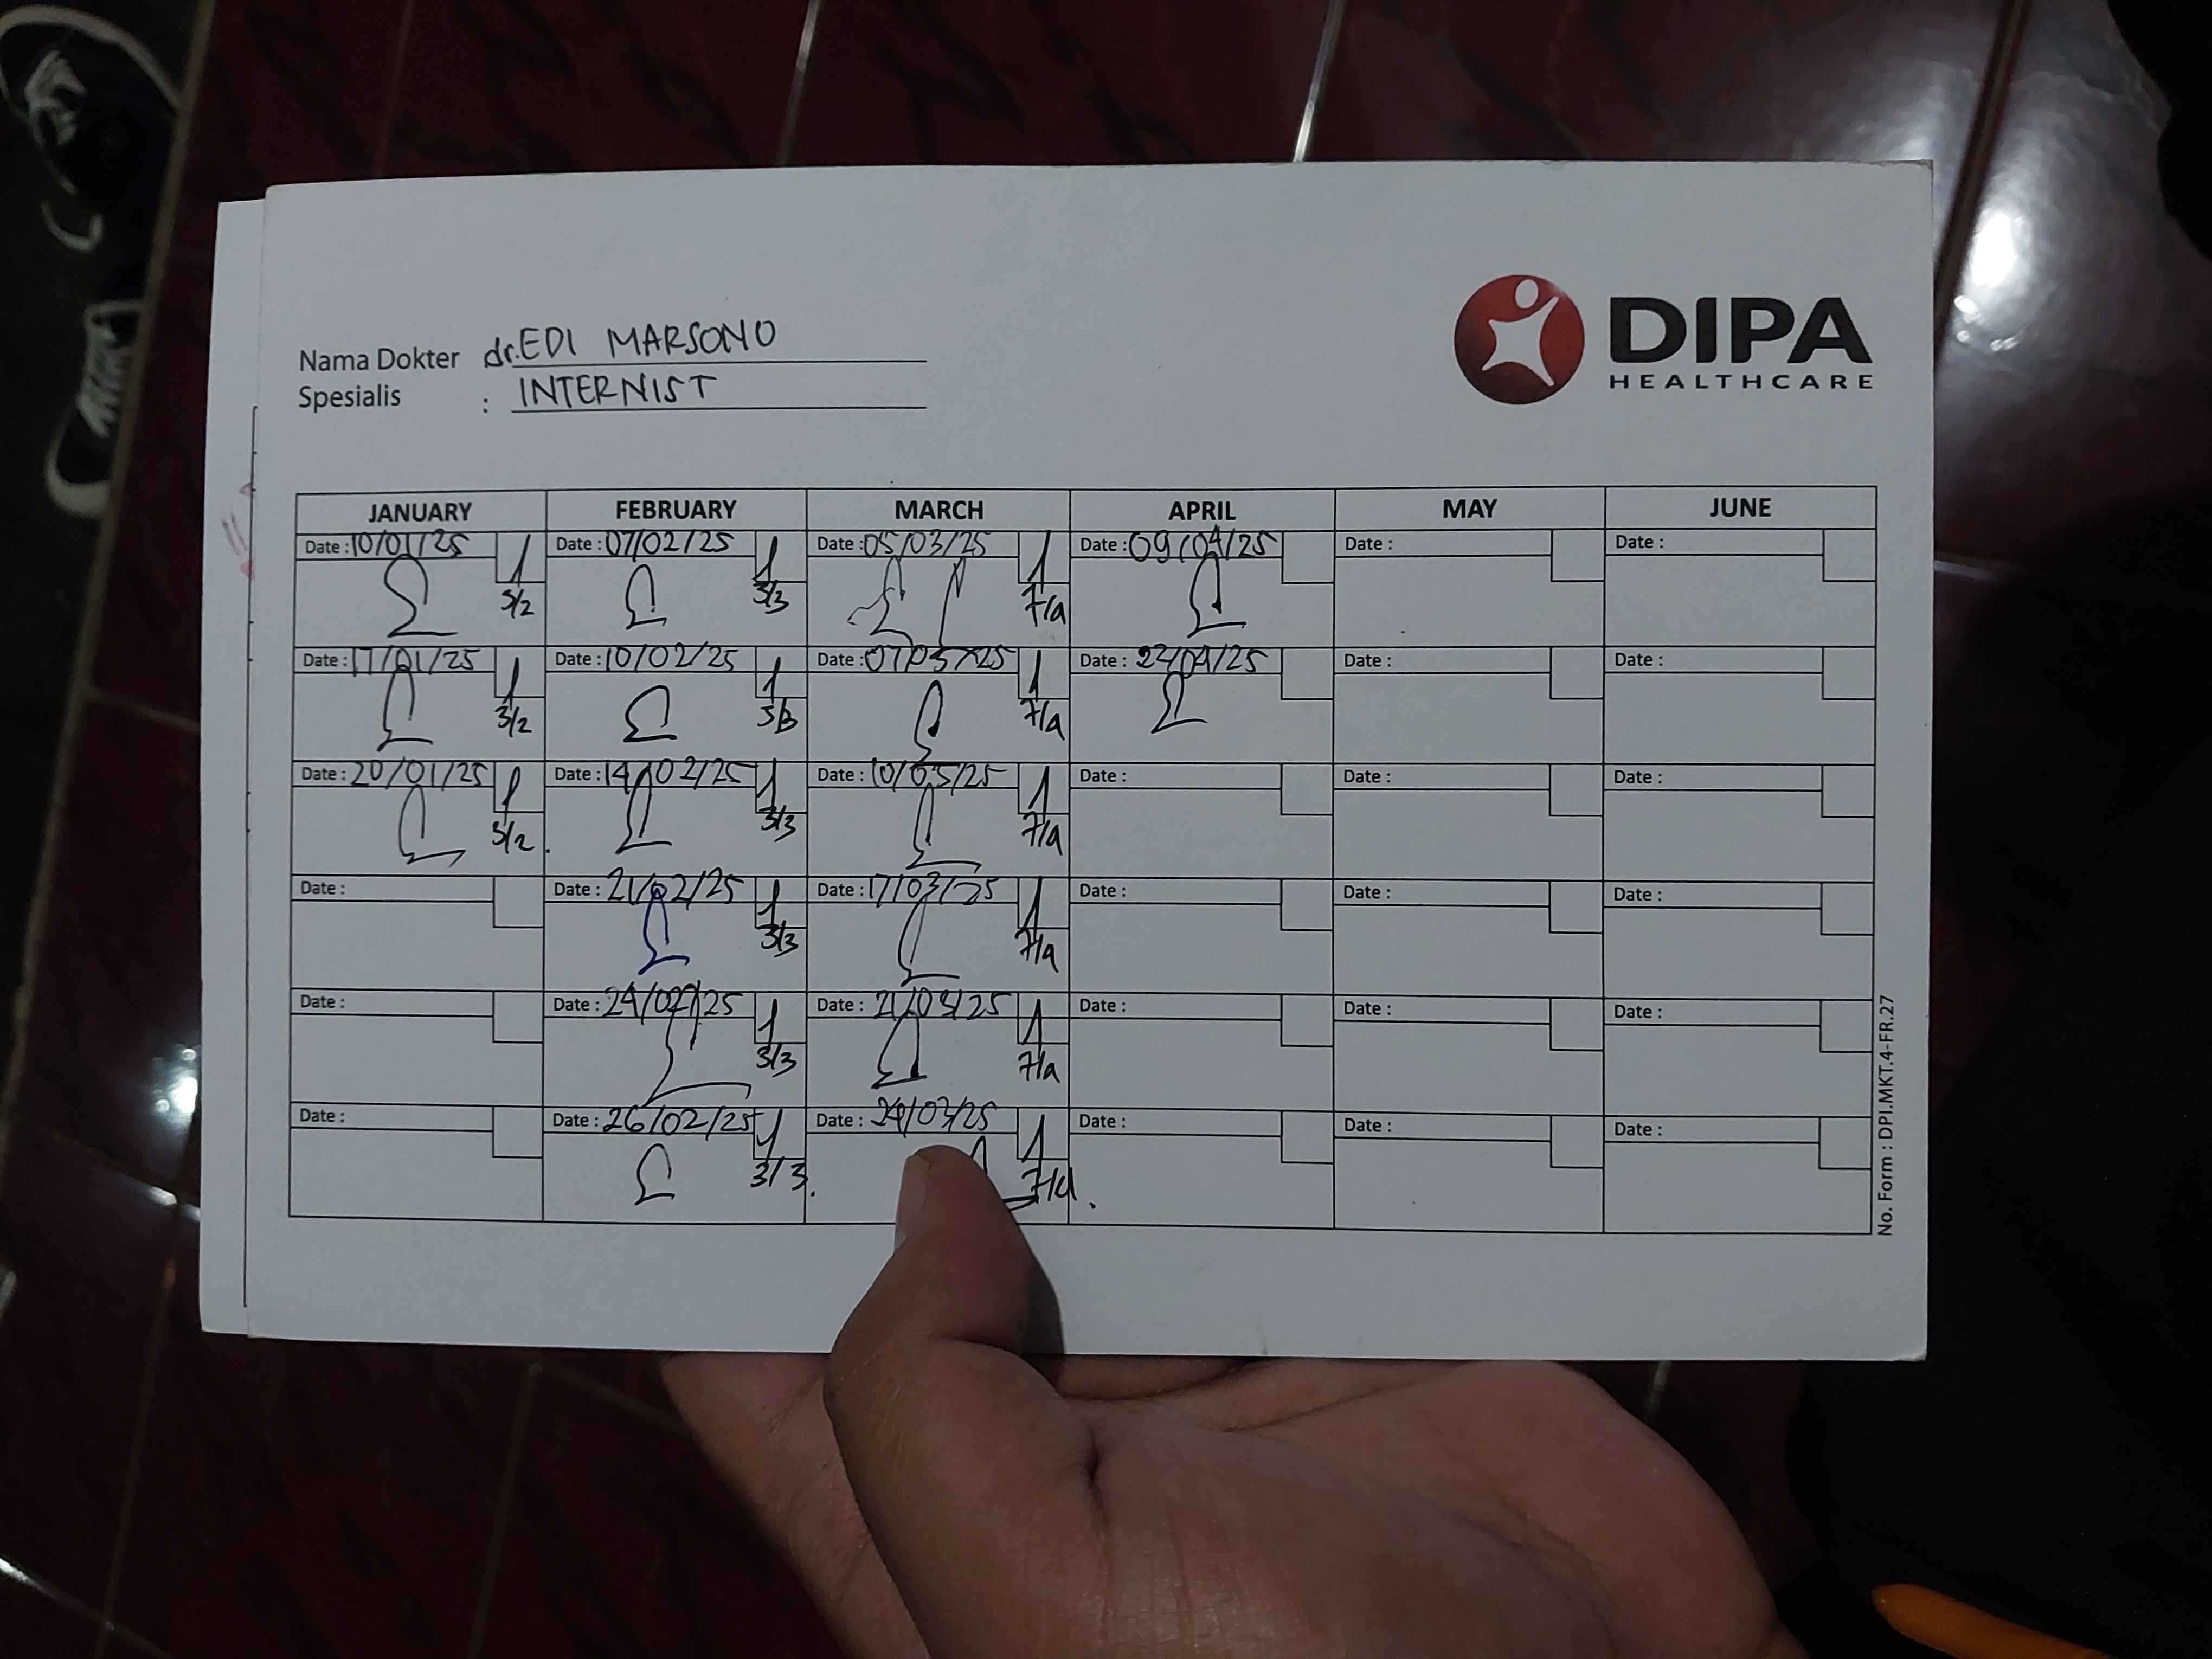 DIPA
HEALTHCARE
Nama Dokter dr.EDI MARSONO
Spesialis : INTERNIST
JANUARY FEBRUARY MARCH APRIL MAY JUNE
Date : 10/01/25 Date : 07/02/25 Date : 05/03/25 Date : 09/04/25 Date : Date :
3/2 3/3 7/4
Date : 17/01/25 Date : 10/02/25 Date : 07/03/25 Date : 22/04/25 Date : Date :
3/2 3/3 7/4
Date : 20/01/25 Date : 14/02/25 Date : 10/03/25 Date : Date : Date :
3/2 3/3 7/4
Date : Date : 21/02/25 Date : 17/03/25 Date : Date : Date :
3/3 7/4
Date : Date : 24/02/25 Date : 21/03/25 Date : Date : Date :
3/3 7/4
Date : Date : 26/02/25 Date : 24/03/25 Date : Date : Date :
3/3. 7/4.
No. Form : DPI.MKT.4-FR.27